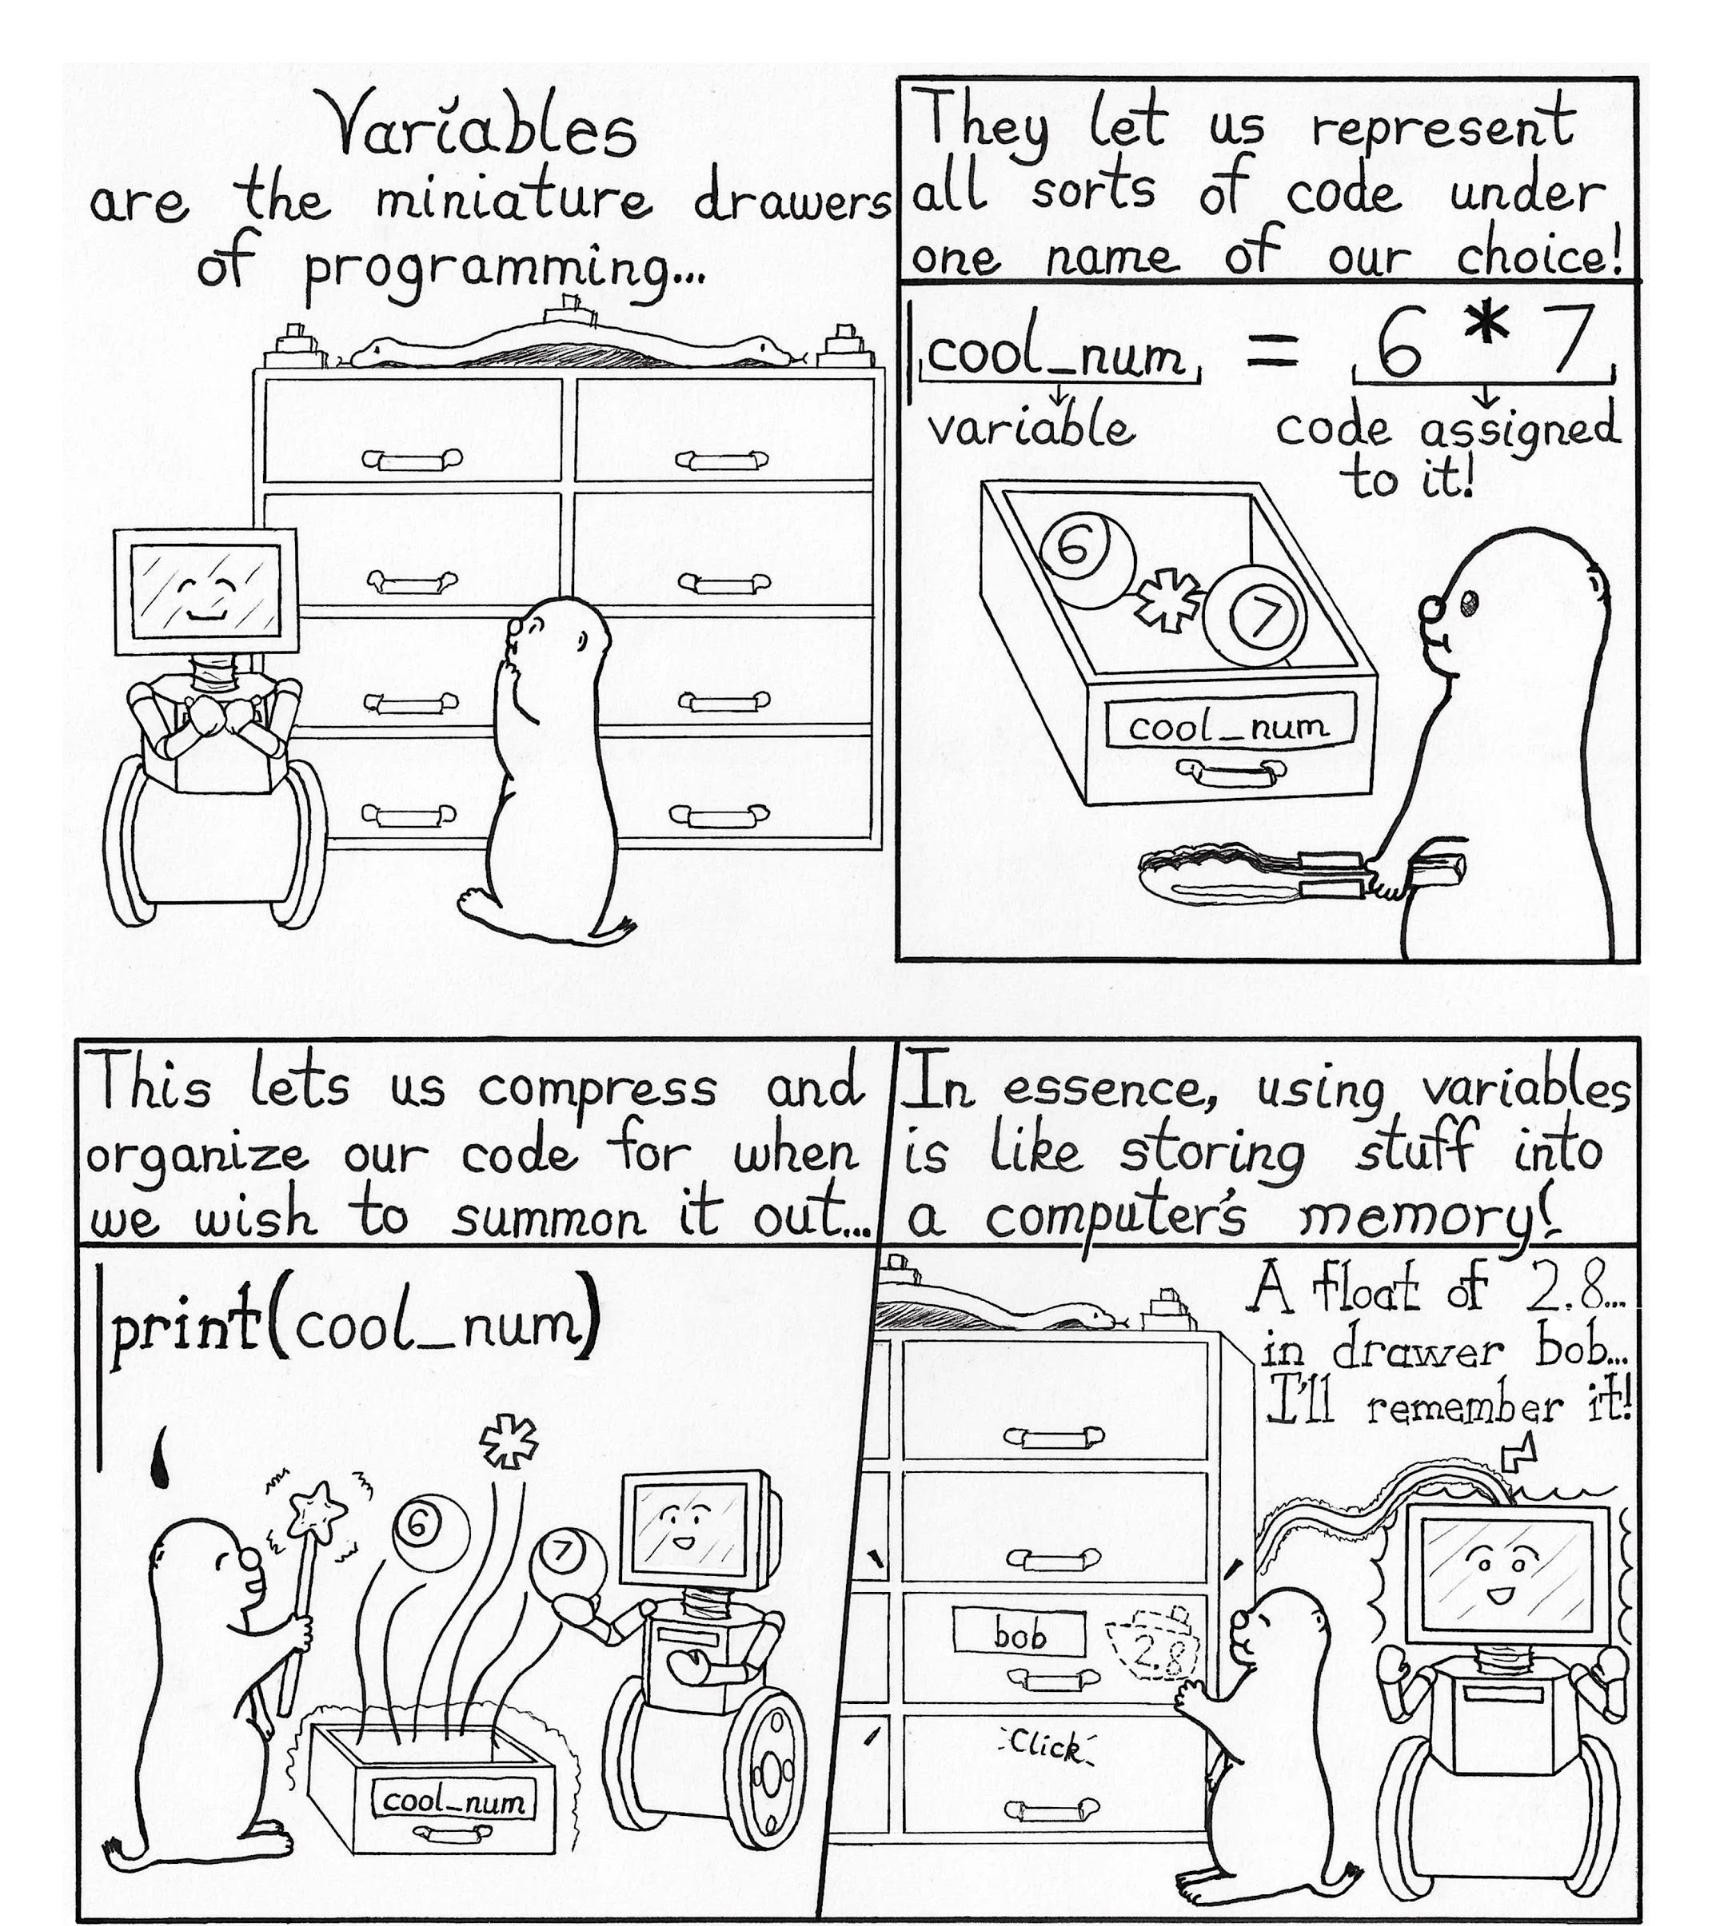 Variables
are the miniature drawers
of programming...
They let us represent
all sorts of code under
one name of our choice!
cool_num = 6 * 7
variable
code assigned
to it!
6
*
7
cool_num
This lets us compress and
organize our code for when
we wish to summon it out...
print(cool_num)
*
6
7
cool_num
In essence, using variables
is like storing stuff into
a computer's memory!
A float of 2.8...
in drawer bob...
I'll remember it!
bob
2.8
Click